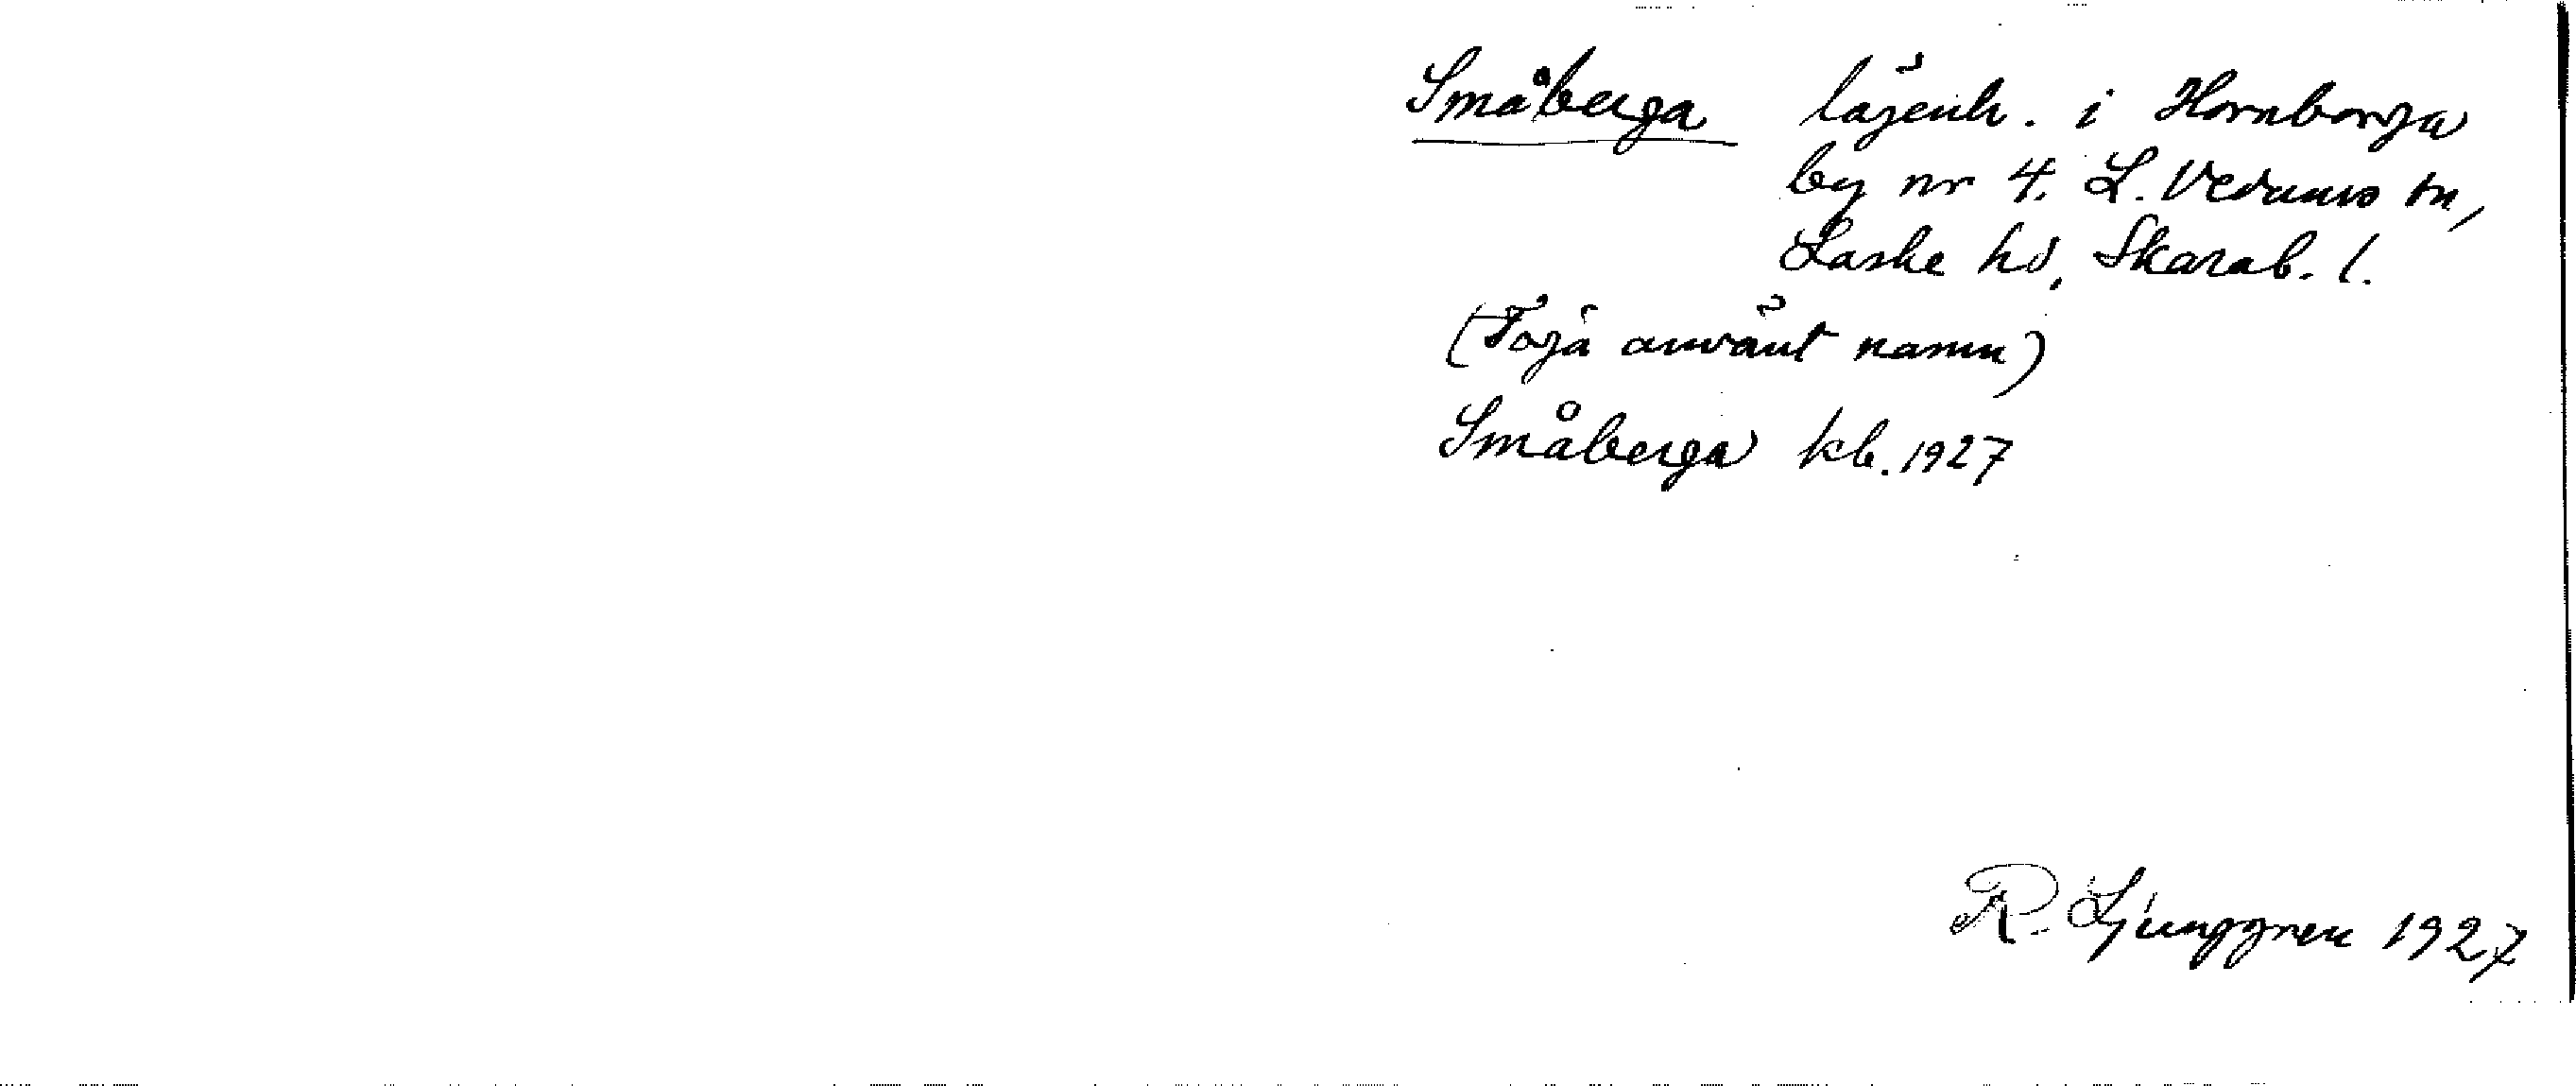 Småberga lägenh. i Hornborga
by nr 4. L. Vedums sn,
Laske hd, Skarab. l.
(Föga använt namn)
Småberga kb. 1927
R. Ljunggren 1927